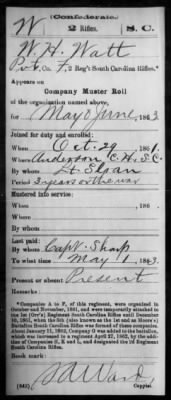 (Confederate.)
W 2 Rifles. S.C.
W. H. Watt
Pvt, Co. F, 2 Reg't South Carolina Rifles.*
Appears on
Company Muster Roll
of the organization named above,
for May & June, 1863
Joined for duty and enrolled:
When Oct. 29, 1861.
Where Anderson C.H. S.C.
By whom Lt. Sloan
Period 3 years or the war
Mustered into service:
When , 186 .
Where
By whom
Last paid:
By whom Capt. Sharp
To what time May 1, 1863.
Present or absent: Present
Remarks:
*Companies A to F, of this regiment, were organized in
October and November, 1861, and were temporarily attached
to the 1st (Orr's) Regiment South Carolina Rifles until December
Battalion South Carolina Rifles was formed of these companies.
About January 21, 1862, Company G was added to the battalion,
which was increased to a regiment April 27, 1862, by the addition
of Companies H, I and K, and designated the 2d Regiment
South Carolina Rifles.
Book mark:
(642) S A Ward
Copyist.